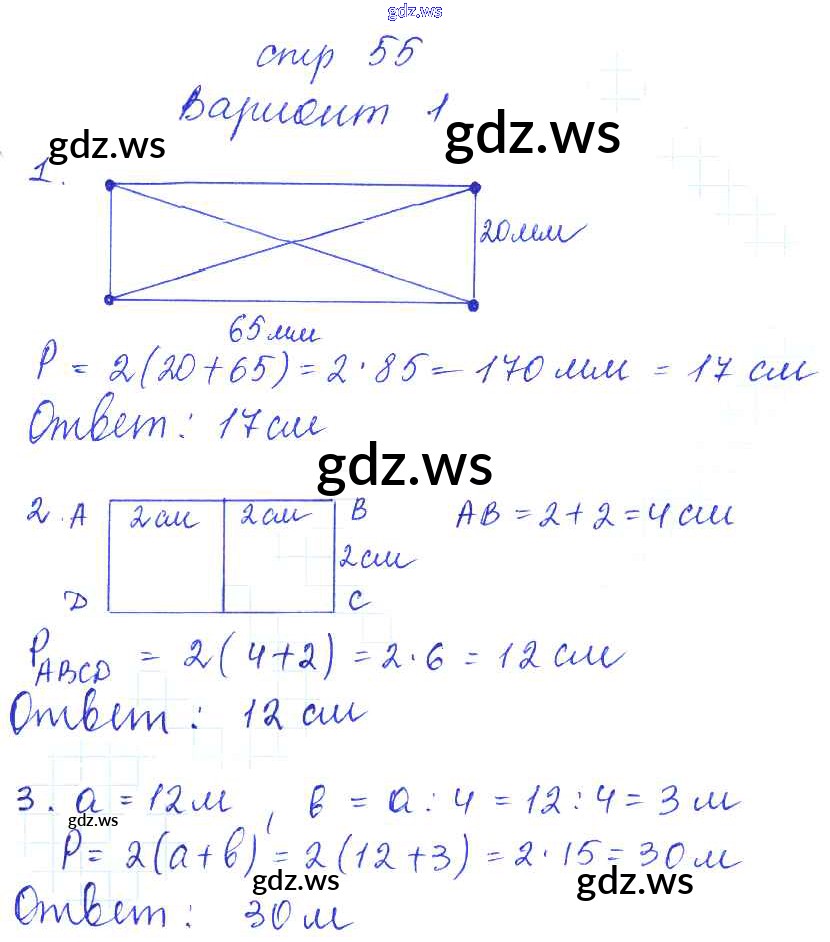 gdz.ws
стр 55
Вариант 1
gdz.ws
gdz.ws
1.
20мм
65мм
P = 2(20+65) = 2·85 = 170мм = 17 см
Ответ: 17см
gdz.ws
2. A 2см 2см B AB = 2+2 = 4см
2см
D C
P ABCD = 2(4+2) = 2·6 = 12 см
Ответ: 12 см
3. a = 12м, в = a : 4 = 12 : 4 = 3 м
gdz.ws
P = 2(a+b) = 2(12+3) = 2·15 = 30м
gdz.ws
gdz.ws
Ответ: 30м